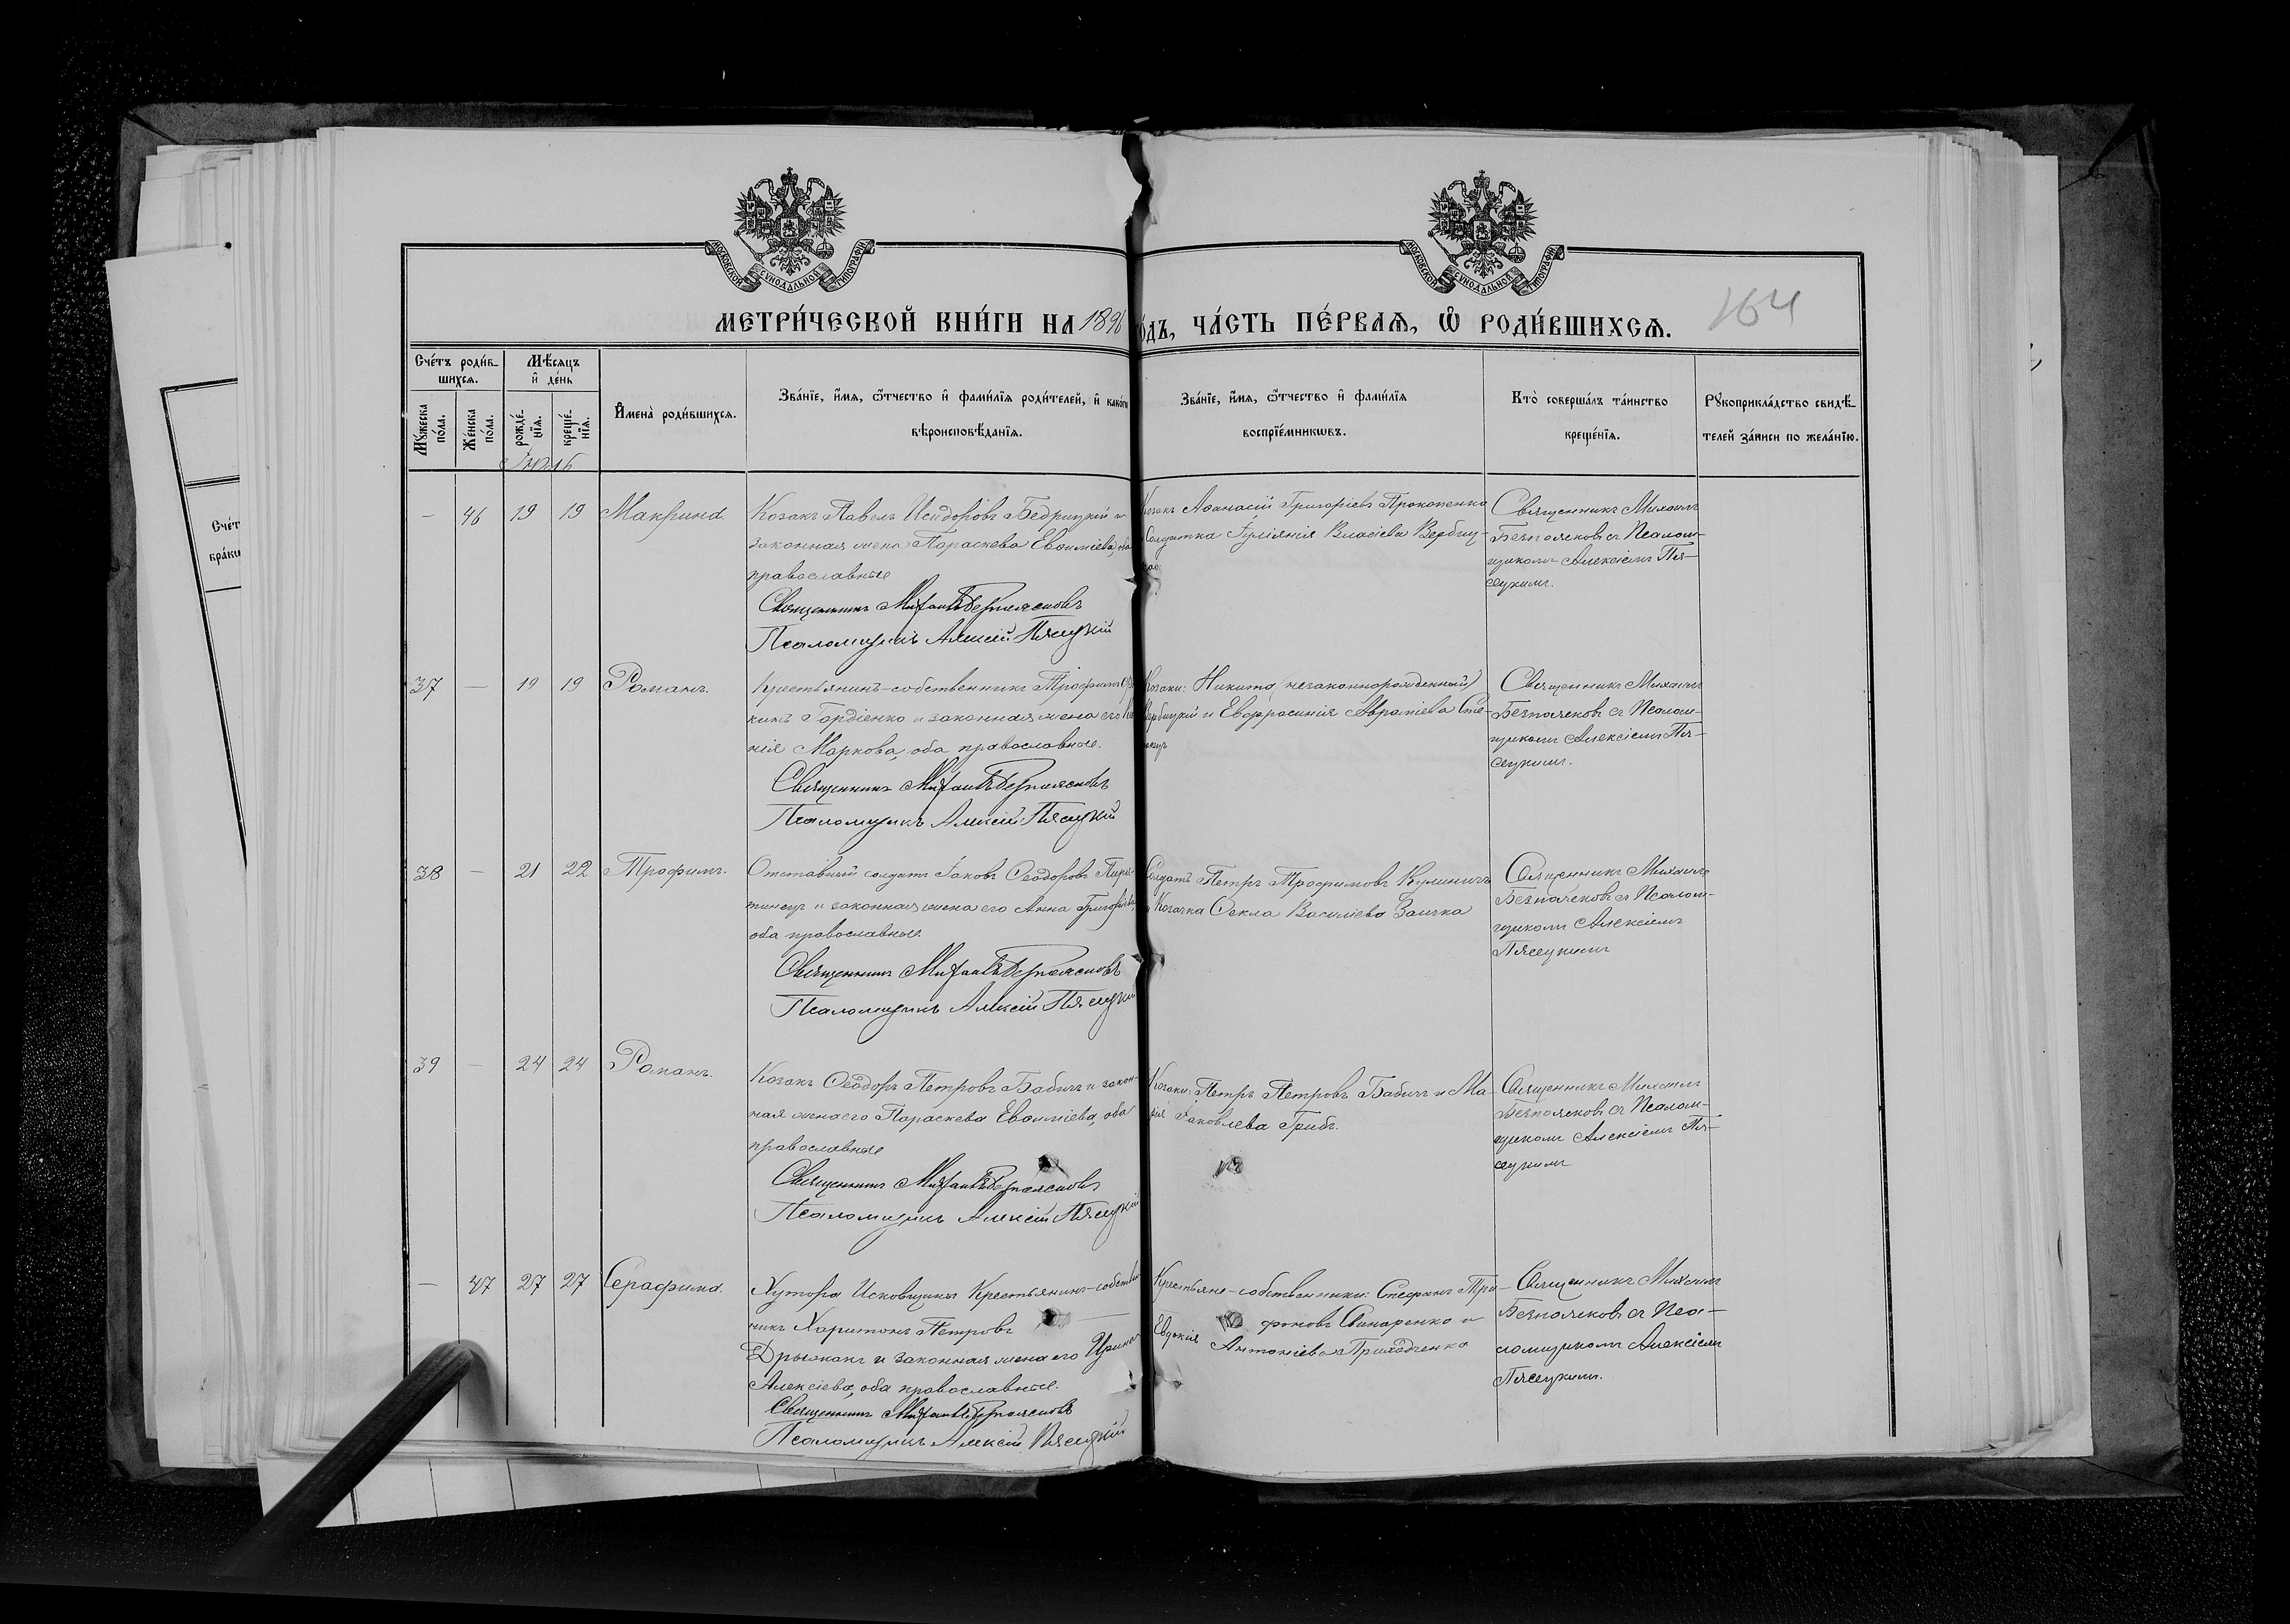 МОСКОВСКОЙ СѴНОДАЛЬНОЙ ТИПОГРАФІИ
МОСКОВСКОЙ СѴНОДАЛЬНОЙ ТИПОГРАФІИ
МЕТРИ́ЧЕСКОЙ КНИ́ГИ НА 1896
о́дъ, ЧА́СТЬ ПЕ́РВАѦ, Ѽ РОДИ́ВШИХСѦ.
164
Сче́тъ роди́в-
шихсѧ.
Мѣ́сѧцъ
и҆ де́нь
Мꙋ́жеска
по́ла.
Же́нска
по́ла.
рожде́-
нїѧ.
креще́-
нїѧ.
И҆мена̀ роди́вшихсѧ.
Зва́нїе, и҆́мѧ, ѻ҆́тчество и҆ фами́лїѧ роди́телей, и҆ како́гѡ
вѣроисповѣ́данїѧ.
Зва́нїе, и҆́мѧ, ѻ҆́тчество и҆ фами́лїѧ
воспрїе́мникѡвъ.
Кто̀ соверша́лъ та́инство
креще́нїѧ.
Рꙋкоприкла́дство свидѣ́-
телей за́писи по жела́нїю.
Счет
бра́ки
— 46 19 19 Макрина.
Козакъ Павелъ Исидоровъ Бедрицкій и
законная жена Параскева Евѳиміева, оба
православные
Священникъ Михаилъ Безпоясковъ
Псаломщикъ Алексій Пясецкій
Козакъ Аѳанасій Григоріевъ Прокопенко
Солдатка Іуліанія Власіева Вербиц-
кая
Священникъ Михаилъ
Безпоясковъ съ Псалом-
щикомъ Алексіемъ Пя-
сецкимъ.
37 — 19 19 Романъ.
Крестьянинъ-собственникъ Трофимъ
кинъ Гордіенко и законная жена его
нія Маркова, оба православные.
Священникъ Михаилъ Безпоясковъ
Псаломщикъ Алексій Пясецкій
Козаки: Никита (незаконнорожденный)
Вербицкій и Евфросинія Авраміева Сте-
Священникъ Михаилъ
Безпоясковъ съ Псалом-
щикомъ Алексіемъ Пя-
сецкимъ.
38 — 21 22 Трофимъ.
Отставной солдатъ Іаковъ Ѳеодоровъ Пиря-
тинецъ и законная жена его Анна Григорьева,
оба православные.
Священникъ Михаилъ Безпоясковъ
Псаломщикъ Алексій Пясецкій
Солдатъ Петръ Трофимовъ Кулиничъ
и Козачка Ѳекла Василіева Заичка
Священникъ Михаилъ
Безпоясковъ съ Псалом-
щикомъ Алексіемъ
Пясецкимъ
39 — 24 24 Романъ.
Козакъ Ѳеодоръ Петровъ Бабичъ и закон-
ная жена его Параскева Евѳиміева, оба
православные
Священникъ Михаилъ Безпоясковъ
Псаломщикъ Алексій Пясецкій
Козаки: Петръ Петровъ Бабичъ и Ма-
рія Іаковлева Грибъ.
Священникъ Михаилъ
Безпоясковъ съ Псалом-
щикомъ Алексіемъ Пя-
сецкимъ
— 47 27 27 Серафима.
Хутора Исковщины Крестьянинъ-собствен-
никъ Харитонъ Петровъ
и законная жена его Ирина
Алексіева, оба православные.
Священникъ Михаилъ Безпоясковъ
Псаломщикъ Алексій Пясецкій
Крестьяне-собственники: Стефанъ Три-
фоновъ Свинаренко и
Евдокія Антоніева Приходченко
Священникъ Михаилъ
Безпоясковъ съ Пса-
ломщикомъ Алексіемъ
Пясецкимъ.